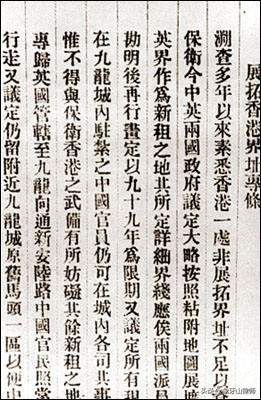 展拓香港界址專條
溯查多年以來素悉香港一處非展拓界址不足以
保衛今中英兩國政府議定大略按照粘附地圖展擴
英界作爲新租之地其所定詳細界綫應俟兩國派員
勘明後再行畫定以九十九年爲限期又議定所有現
在九龍城內駐紮之中國官員仍可在城內各司其事
惟不得與保衛香港之武備有所妨礙其餘新租之地
專歸英國管轄至九龍向通新安陸路中國官民照常
行走又議定仍留附近九龍城原舊馬頭一區以便中